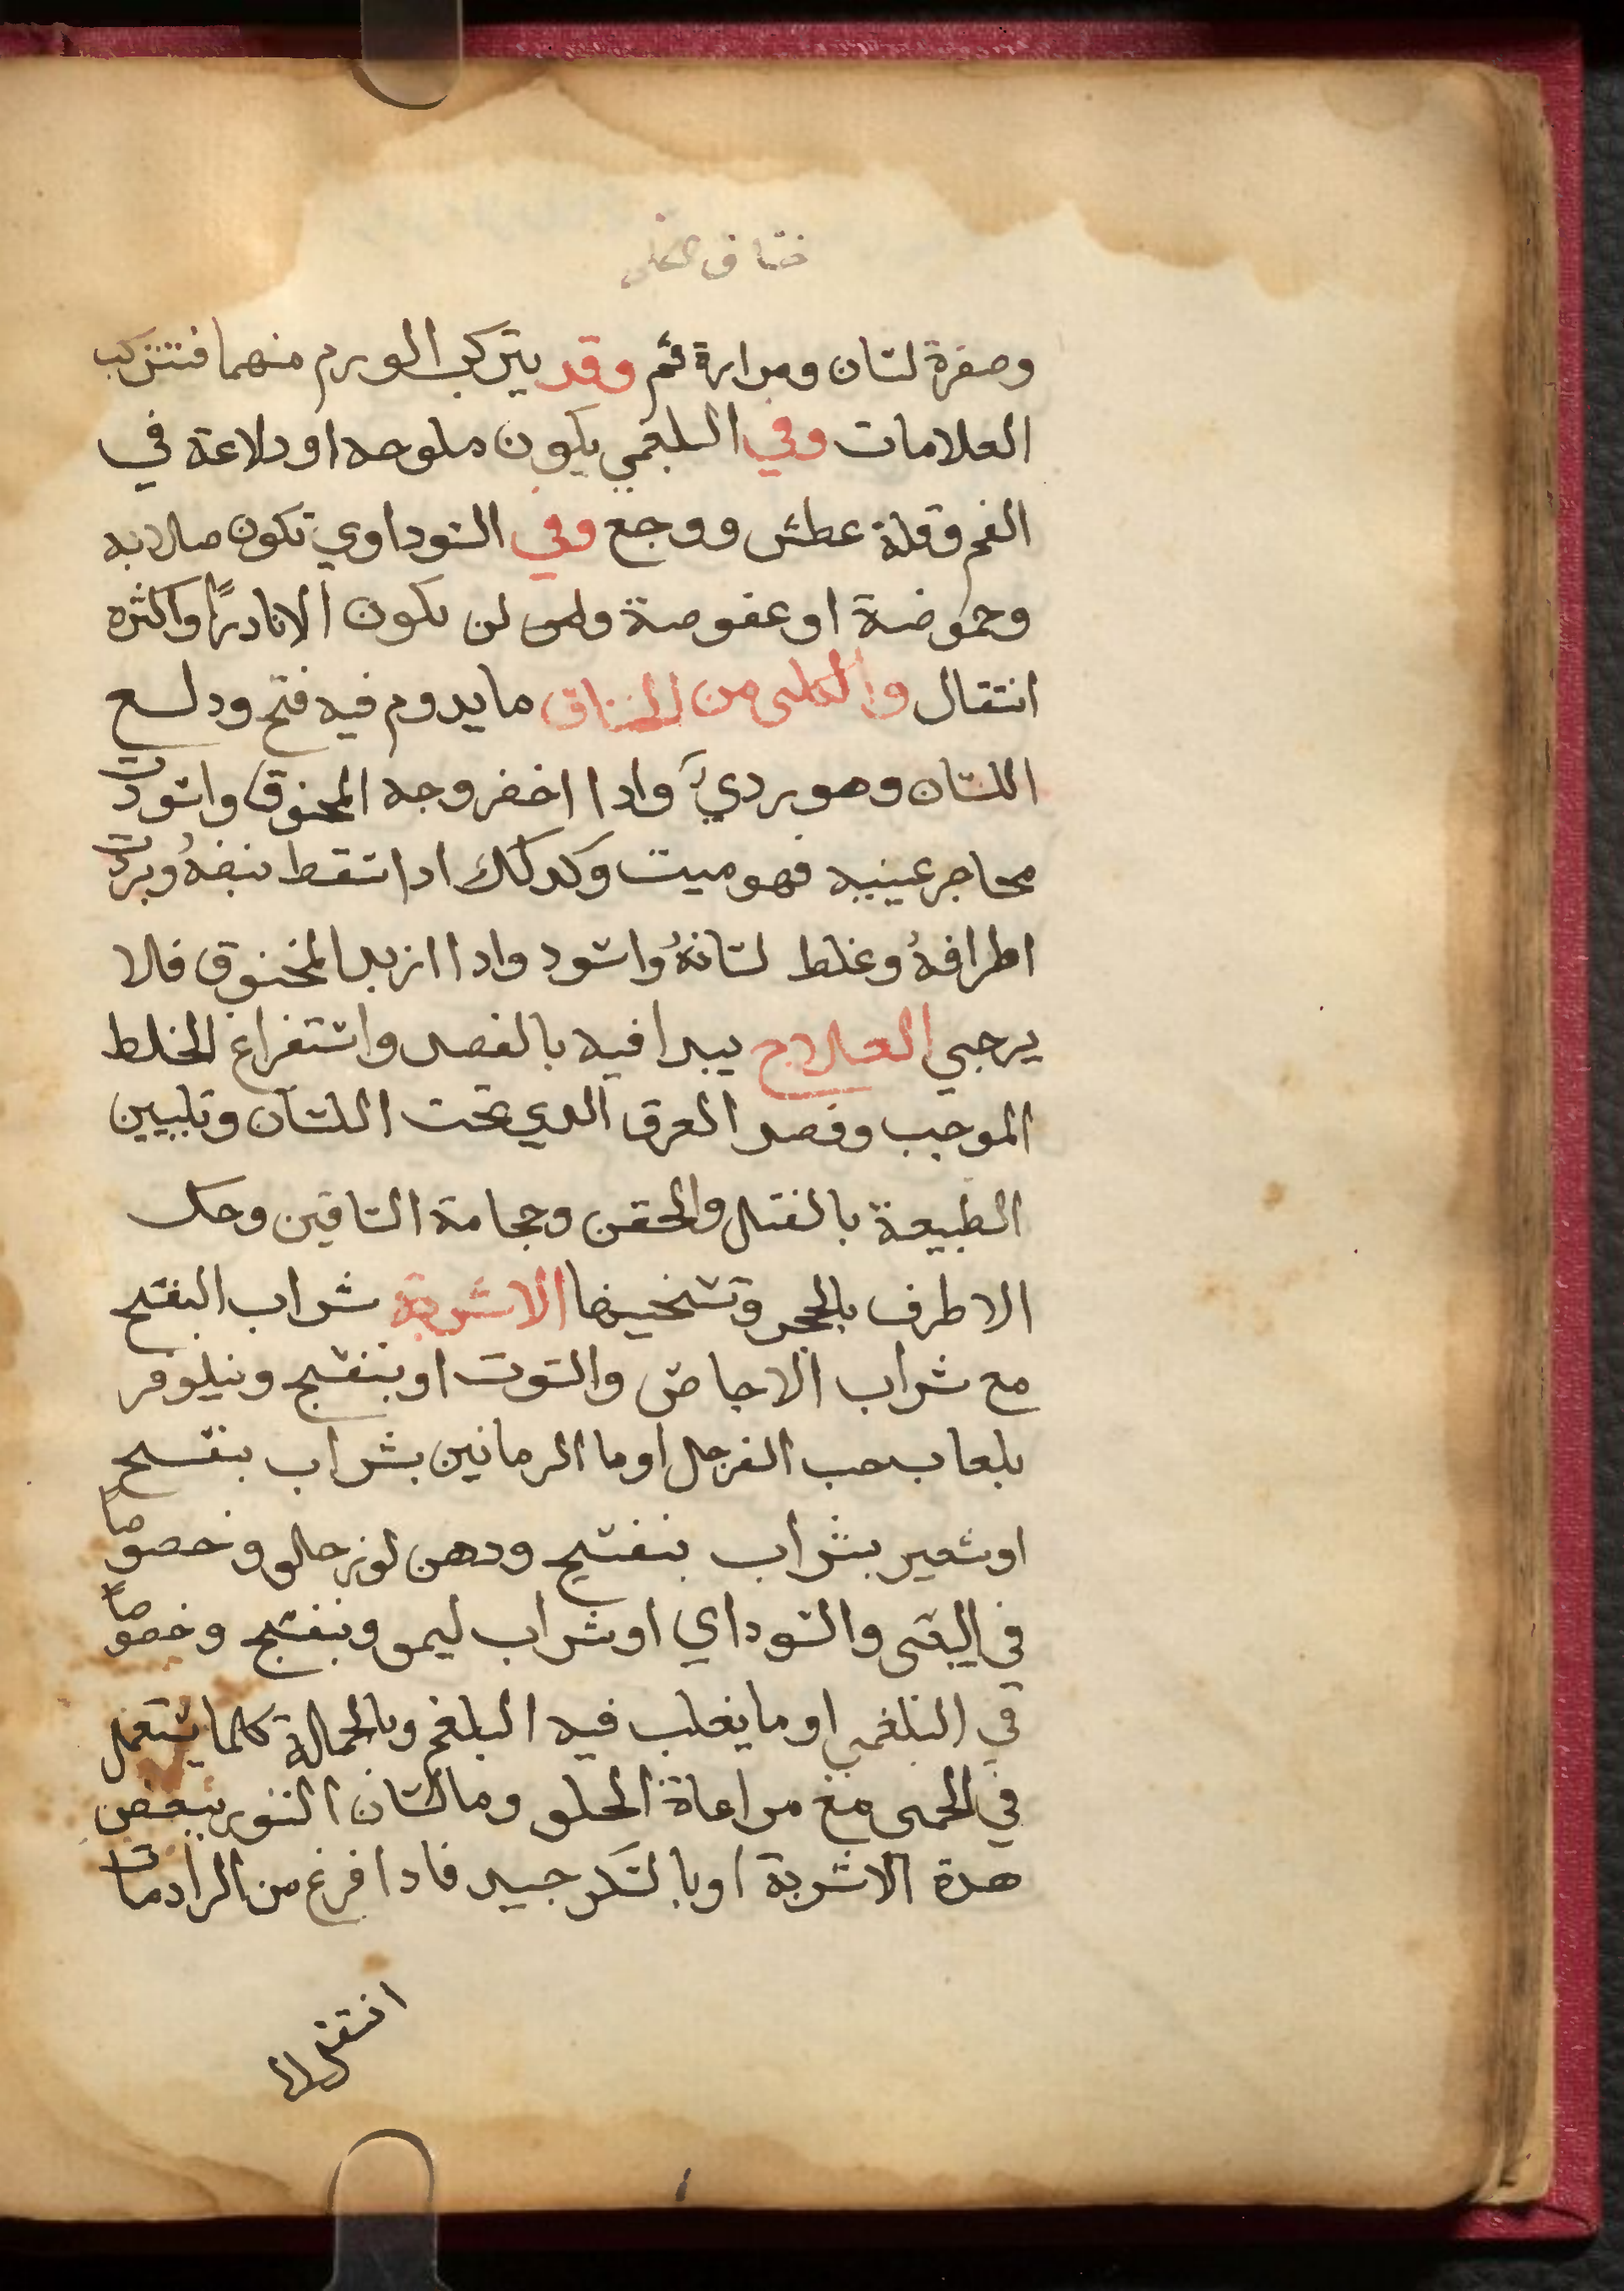 خناق الكلبي
وصفرة لسان ومرارة ثم وقد يتركب الورم منهما فتتركب
العلامات وفي البلغمي يكون ملوحه او دلاعة في
الفم وقلة عطش ووجع وفي السوداوي تكون صلابه
وحموضة او عفوصة ولمس لن يكون الا نادرًا واكثره
انتقال والكلبى من الخناق ما يدوم فيه فتح ودلع
اللسان وهو رديّ وادا اخضر وجه المخنوق واسودت
محاجر عينيه فهو ميت وكدلك ادا سقط نبضهُ وبردت
اطرافهُ وغلط لسانهُ واسود وادا ازبد المخنوق فلا
يرجي العلاج يبدا فيه بالفصد واستفراغ الخلط
الموجب وفصد العرق الدي تحت اللسان وتليين
الطبيعة بالفتل والحقن وحجامة الساقين وحك
الاطرف بالحجر وتسخينها الاشربة شراب البنفسج
مع شراب الاجاص والتوت او بنفسج ونيلوفر
بلعاب حب السفرجل او ما الرمانين بشراب بنفسج
او شعير بشراب بنفسج ودهن لوز حلو وخصوصًا
في اليقى والسوداي او شراب ليمو وبنفسج وخصوصًا
في البلغمي او ما يغلب فيه البلغم وبالجملة كلما يستعمل
في الحمى مع مراعاة الحلو وما لسان الثور ببعض
هدة الاشربة او بالسكر جيد فادا فرغ من الرادعات
انتقل الا